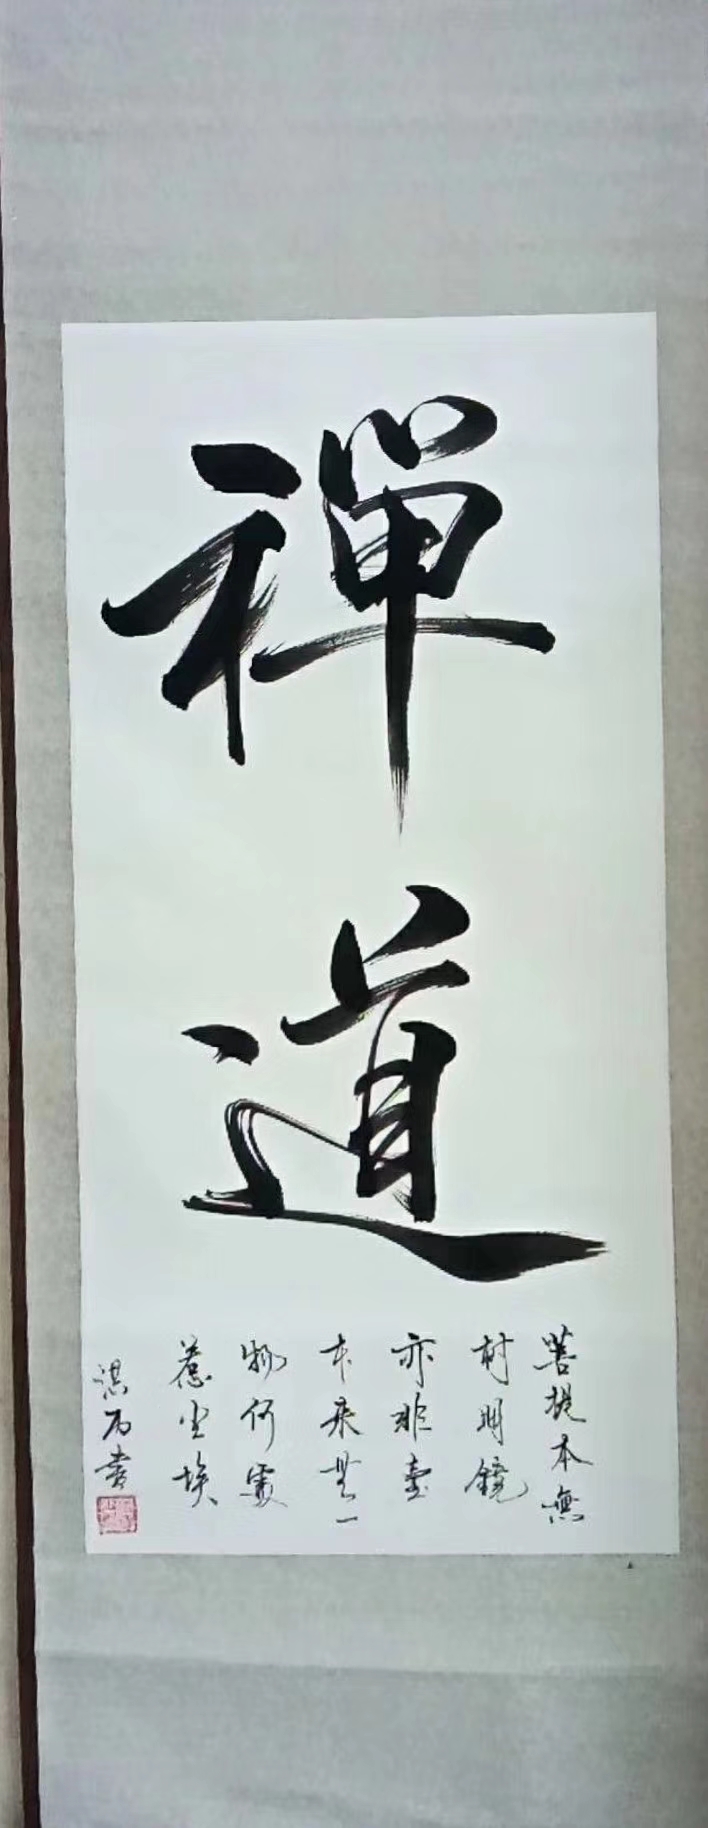 禪
道
菩提本無
树明鏡
亦非臺
本来無一
物何處
惹尘埃
石書